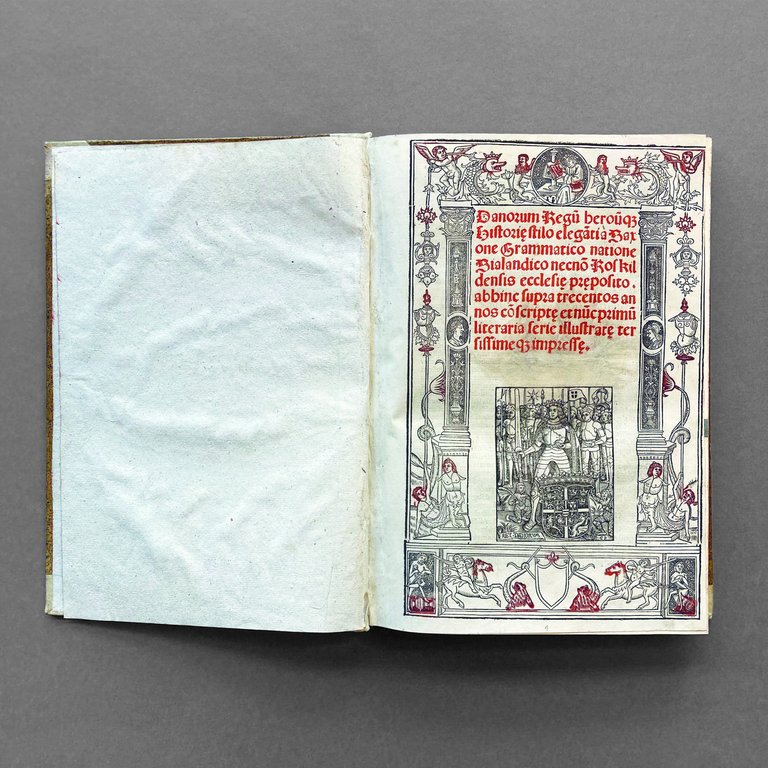 Danorum Regū heroūqꝫ
Historię stilo elegāti a Sax
one Grammatico natione
Sialandico necnō Roskil
densis ecclesię pręposito.
abhinc supra trecentos an
nos cōscriptę et nūc primū
literaria serie illustratę ter
sissimeqꝫ impressę.